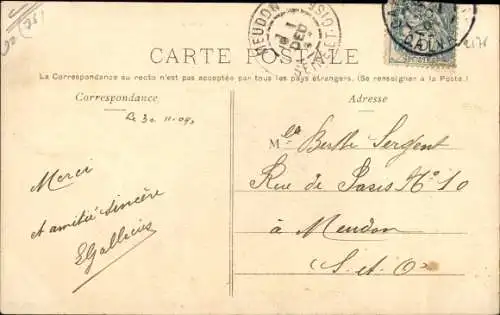 CARTE POSTALE
La Correspondance au recto n'est pas acceptée par tous les pays étrangers. (Se renseigner à la Poste.)
Correspondance
Adresse
Le 30. 11-09,
Merci
et amitié sincère
EGallicis
Mlle Berthe Sergent
Rue de Paris No 10
à Meudon
(S. et O)
MEUDON
DEC